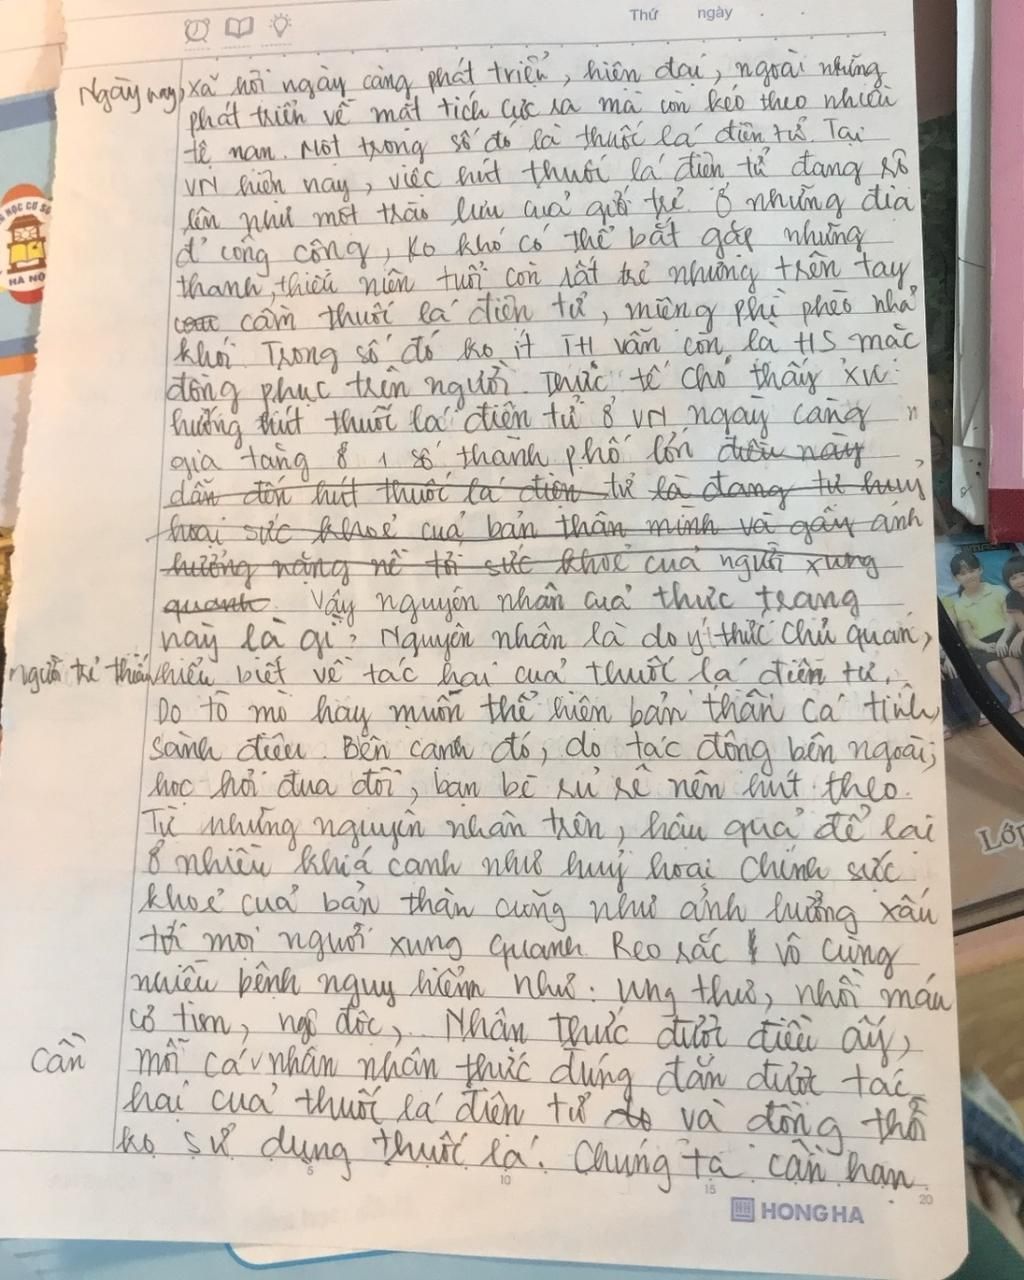 Thứ ngày
Ngày nay, xã hội ngày càng phát triển, hiện đại, ngoài những
phát triển về mặt tích cực ra mà còn kéo theo nhiều
tệ nạn. Một trong số đó là thuốc lá điện tử. Tại
VN hiện nay, việc hút thuốc lá điện tử đang rộ
lên như một trào lưu của giới trẻ. Ở những địa
đ' công cộng, ko khó có thể bắt gặp những
thanh, thiếu niên tuổi còn rất trẻ nhưng trên tay
cầm thuốc lá điện tử, miệng phì phèo nhả
khói. Trong số đó ko ít TH vẫn còn là HS mặc
đồng phục trên người. Thực tế cho thấy xu
hướng hút thuốc lá điện tử ở VN ngày càng
gia tăng ở 1 số thành phố lớn điều này
dẫn đến hút thuốc lá điện tử là đang tự huỷ
hoại sức khoẻ của bản thân mình và gây ảnh
hưởng nặng nề tới sức khoẻ của người xung
quanh. Vậy nguyên nhân của thực trạng
này là gì? Nguyên nhân là do ý thức chủ quan,
người trẻ thiếu hiểu biết về tác hại của thuốc lá điện tử.
Do tò mò hay muốn thể hiện bản thân cá tính,
sành điệu. Bên cạnh đó, do tác động bên ngoài,
học hỏi đua đòi, bạn bè rủ rê nên hút theo.
Từ những nguyên nhân trên, hậu quả để lại
ở nhiều khía cạnh như huỷ hoại chính sức
khoẻ của bản thân cũng như ảnh hưởng xấu
tới mọi người xung quanh. Reo rắc vô cùng
nhiều bệnh nguy hiểm như: Ung thư, nhồi máu
cơ tim, ngộ độc,.. Nhận thức được điều ấy,
mỗi cá nhân cần nhận thức đúng đắn được tác
hại của thuốc lá điện tử và đồng thời
ko sử dụng thuốc lá. Chúng ta cần hạn
5 10 15 20
HONG HA
HỌC CƠ SỞ
HÀ NỘ
Lớp